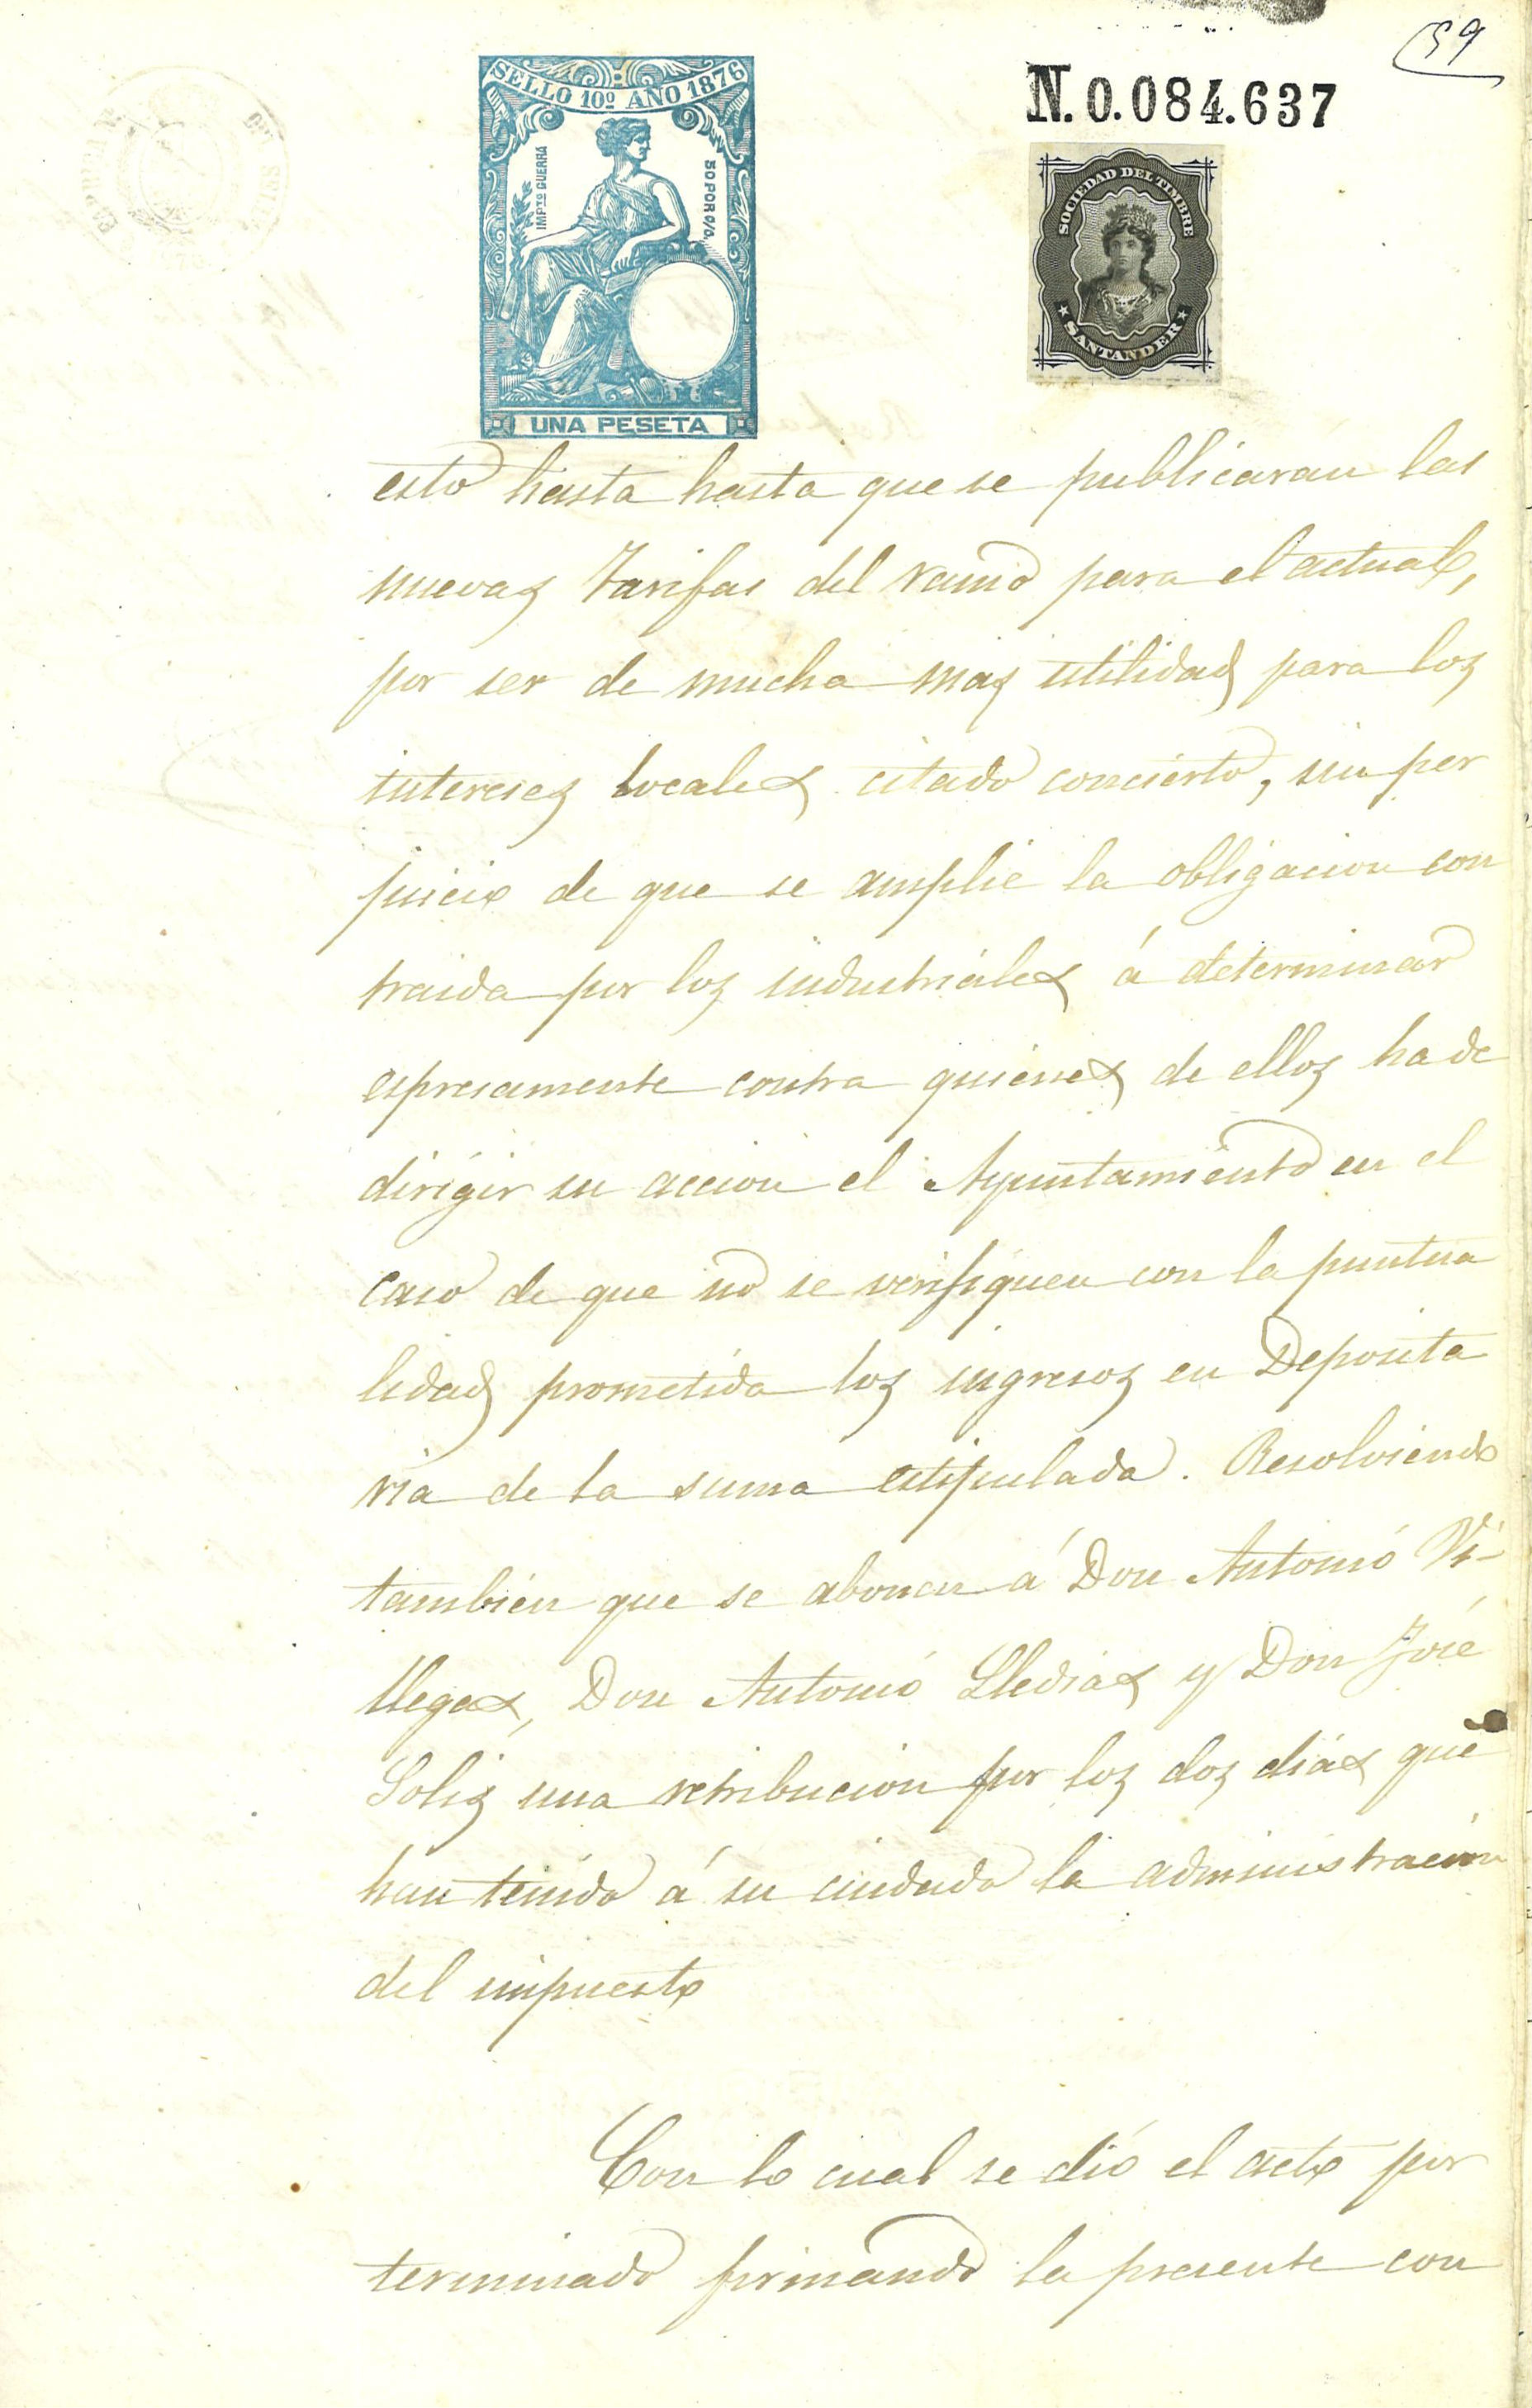 59
SELLO 10º AÑO 1876
IMPTO GUERRA
50 POR 0/0.
UNA PESETA
N. 0.084.637
SOCIEDAD DEL TIMBRE
SANTANDER
esto hasta hasta que se publicaran las
nuevas Tarifas del ramo para el actual,
por ser de mucha mas utilidad para los
intereses locales citado concierto, sin per
juicio de que se amplie la obligacion con
traida por los industriales á determinar
espresamente contra quienes de ellos ha de
dirigir su accion el Ayuntamiento en el
caso de que no se verifiquen con la puntua
lidad prometida los ingresos en Deposita
ria de la suma estipulada. Resolviendo
tambien que se abonen á Don Antonio Vi-
llegas, Don Antonio Lledias y Don José
Solis una retribucion por los dos dias que
han tenido á su cuidado la administracion
del impuesto
Con lo cual se dió el acto por
terminado firmando la presente con